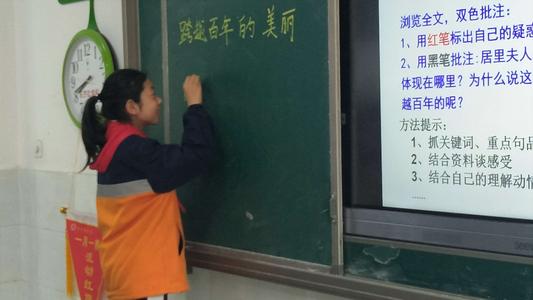 跨越百年的美丽
浏览全文，双色批注：
1、用红笔标出自己的疑惑
2、用黑笔批注：居里夫人
体现在哪里？为什么说这
越百年的呢？
方法提示：
1、抓关键词、重点句品
2、结合资料谈感受
3、结合自己的理解动情
……
一月一
流动红